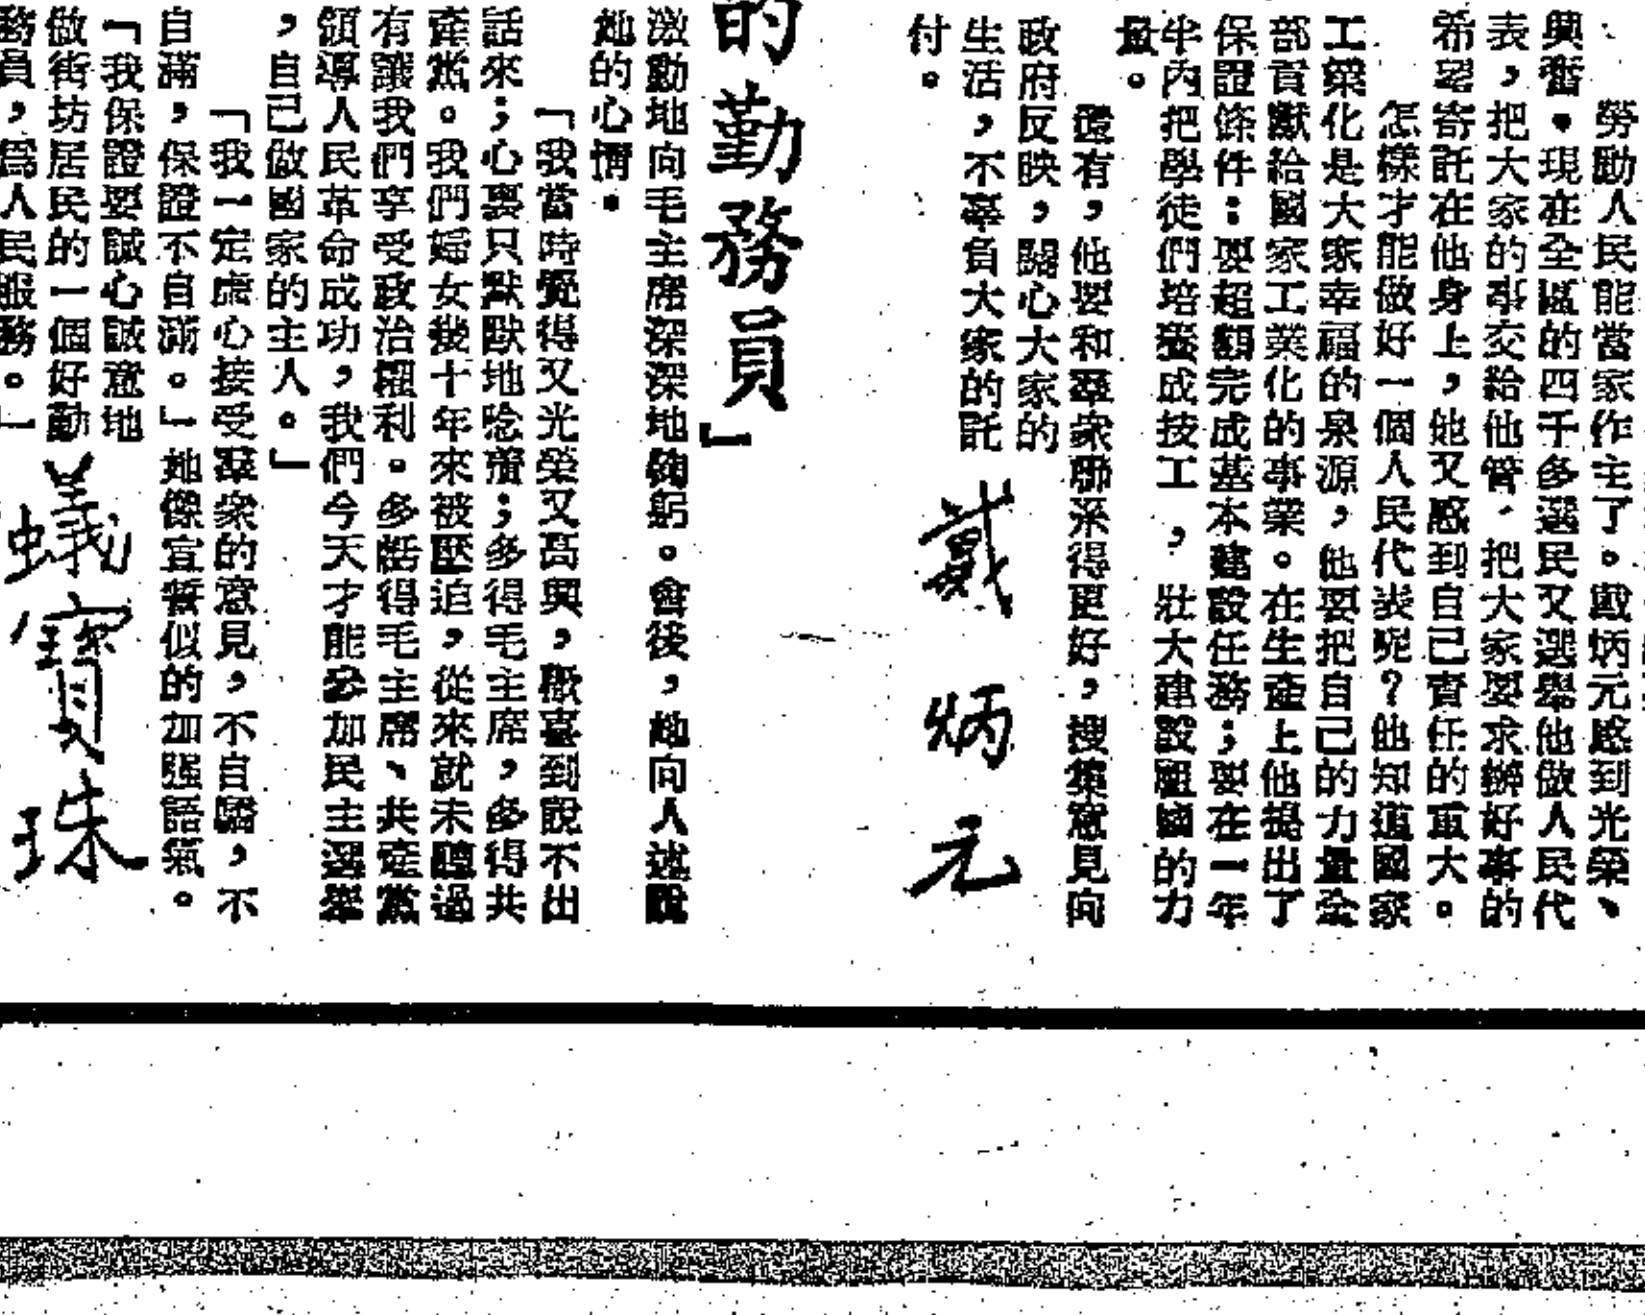 勞動人民能當家作主了。戴炳元感到光榮、
興奮。現在全區的四千多選民又選舉他做人民代
表，把大家的事交給他管，把大家要求辦好事的
希望寄託在他身上，他又感到自己責任的重大。
怎樣才能做好一個人民代表呢？他知道國家
工業化是大家幸福的泉源，他要把自己的力量全
部貢獻給國家工業化的事業。在生產上他提出了
保證條件：要超額完成基本建設任務；要在一年
半內把學徒們培養成技工，壯大建設祖國的力
量。
還有，他要和羣衆聯系得更好，搜集意見向
政府反映，關心大家的
生活，不辜負大家的託
付。
戴炳元
的勤務員」
激動地向毛主席深深地鞠躬。會後，她向人述說
她的心情。
「我當時覺得又光榮又高興，歡喜到說不出
話來；心裏只默默地唸着；多得毛主席，多得共
產黨。我們婦女幾十年來被壓迫，從來就未聽過
有讓我們享受政治權利。多謝得毛主席、共產黨
領導人民革命成功，我們今天才能參加民主選舉
，自己做國家的主人。」
「我一定虛心接受羣衆的意見，不自驕，不
自滿，保證不自滿。」她像宣誓似的加強語氣。
「我保證要誠心誠意地
做街坊居民的一個好勤
務員，爲人民服務。」
蟻寶珠